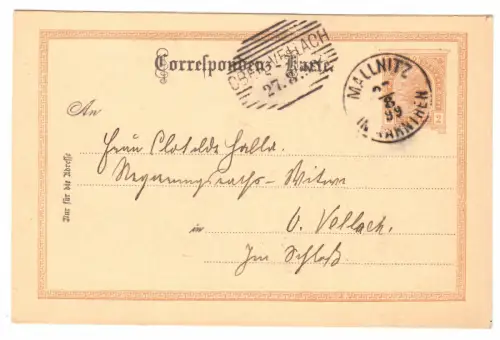 Correspondenz-Karte.
OBERVELLACH
27. 8.
MALLNITZ
8
99
IN KÄRNTHEN
An
Frau Clotilde Halla.
Regierungsraths-Witwe
in
O. Vellach.
Im Schloß
Nur für die Adresse